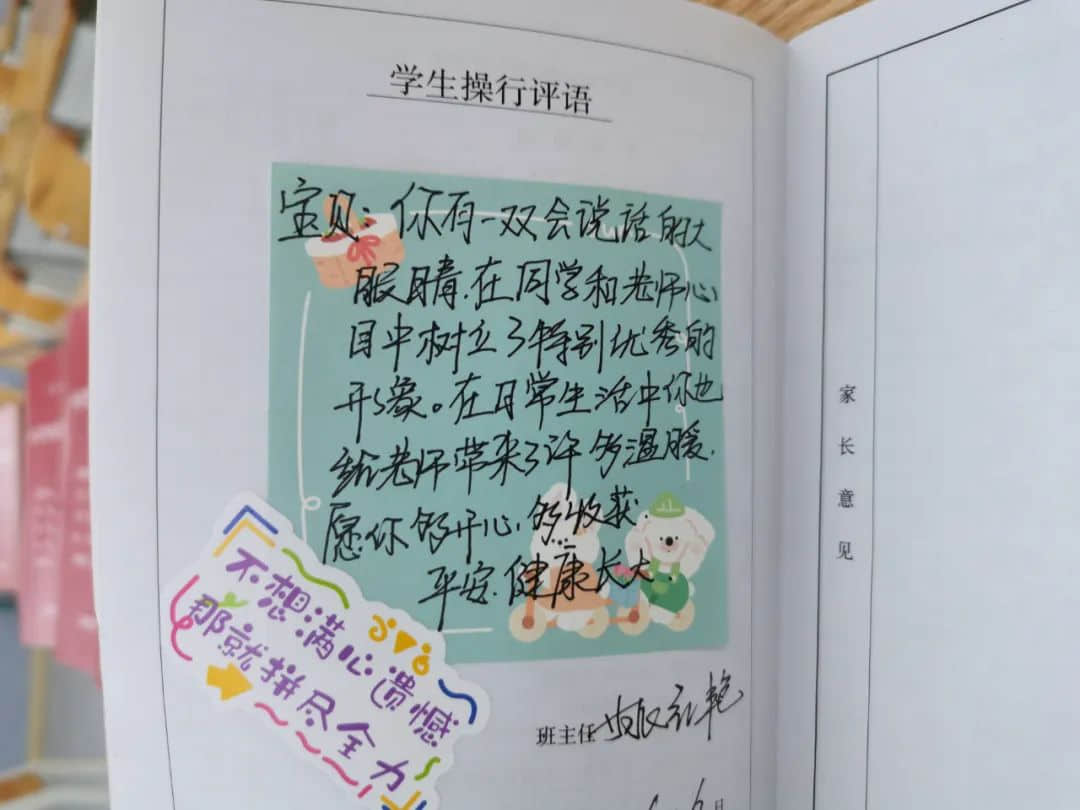 学生操行评语
宝贝：你有一双会说话的大
眼睛.在同学和老师心
目中树立了特别优秀的
形象。在日常生活中你也
给老师带来了许多温暖.
愿你多开心,多收获.
平安.健康长大
不想满心遗憾
那就拼尽全力
班主任
家长意见